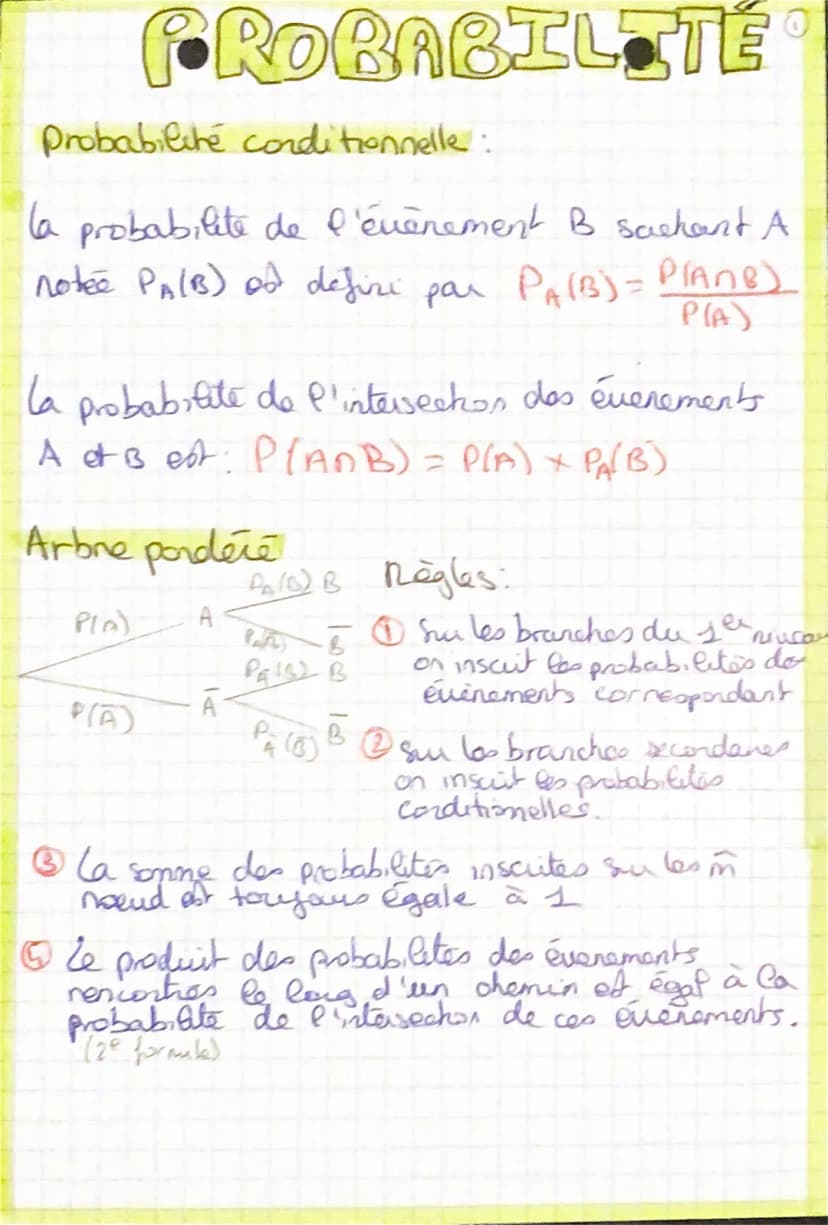 PROBABILITÉ
1
Probabilité conditionnelle :
la probabilité de l'évènement B sachant A
notée PA(B) est défini par PA(B) = P(A∩B)
P(A)
La probabilité de l'intersection des évenements
A et B est : P(A∩B) = P(A) × PA(B)
Arbre pondéré
Règles :
P(A) A PA(B) B
PA(B̅) B̅
P(A̅) A̅ PA̅(B) B
PA̅(B̅) B̅
① Sur les branches du 1er niveau
on inscrit les probabilités des
évènements correspondant
② sur les branches secondaires
on inscrit les probabilités
conditionelles.
③ La somme des probabilités inscrites sur les m̂
noeud est toujours égale à 1
⑤ Le produit des probabilités des évenements
rencontrés le long d'un chemin est égal à la
probabilité de l'intersection de ces évènements.
(2e formule)